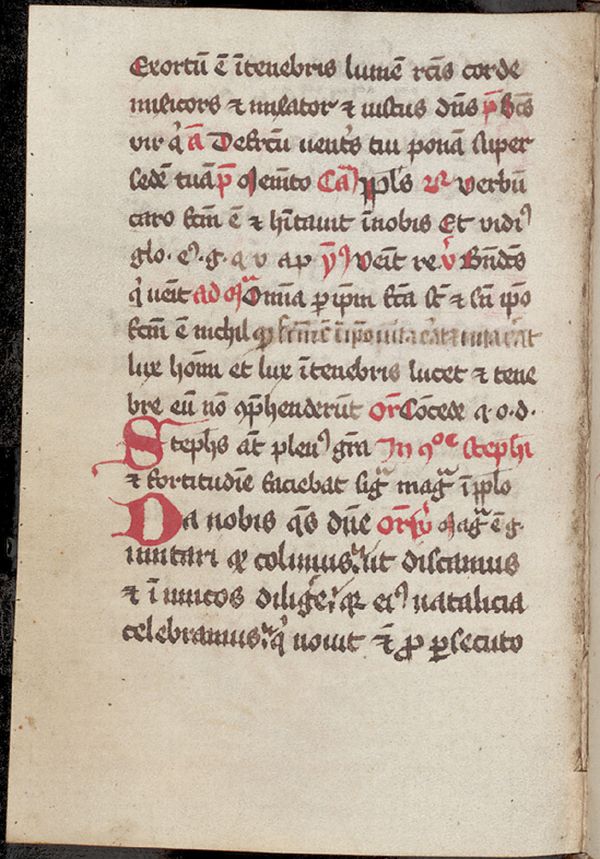 Exortū ē ītenebris lumē rc̄is corde
mis̄icors & mis̄ator & iustus dn̄s p̄ bt̄s
vir q̇ ā Defrc̄tu uent's tui ponā super
sedē tuā p̄ Mem̄to Ca͞ Ppl's R̷ Verbū
caro fc̄m ē & hītauit īnobis Et vidi9
glo· e9· g· q v a p ỹ9 Ven̄it re v̇ Bn̄dc̄s
q̇ uen̄it ad mͣ Om̄ia p ip̄m fc̄a st̄ & sn̄ ip̄o
fc̄m ē nichil qͫ fc̄m ē īip̄o uita erat & uita erat
lux hom̄ et lux ītenebris lucet & tene
bre eū nō 9p̄henderūt or̄ Cōcede q· o· d·
Stephs aū plen9 gr̄a In 9oe stephi
& fortitudīe faciebat sigͣ magͣ īpplo
Da nobis qs̄ dn̄e or̄ ṽ Magͣ ē g·
imitari qͩ colimus ut discamus
& īimicos diligẽ qr ei9 natalicia
celebramus q̇ nouit & p̄ psecuto